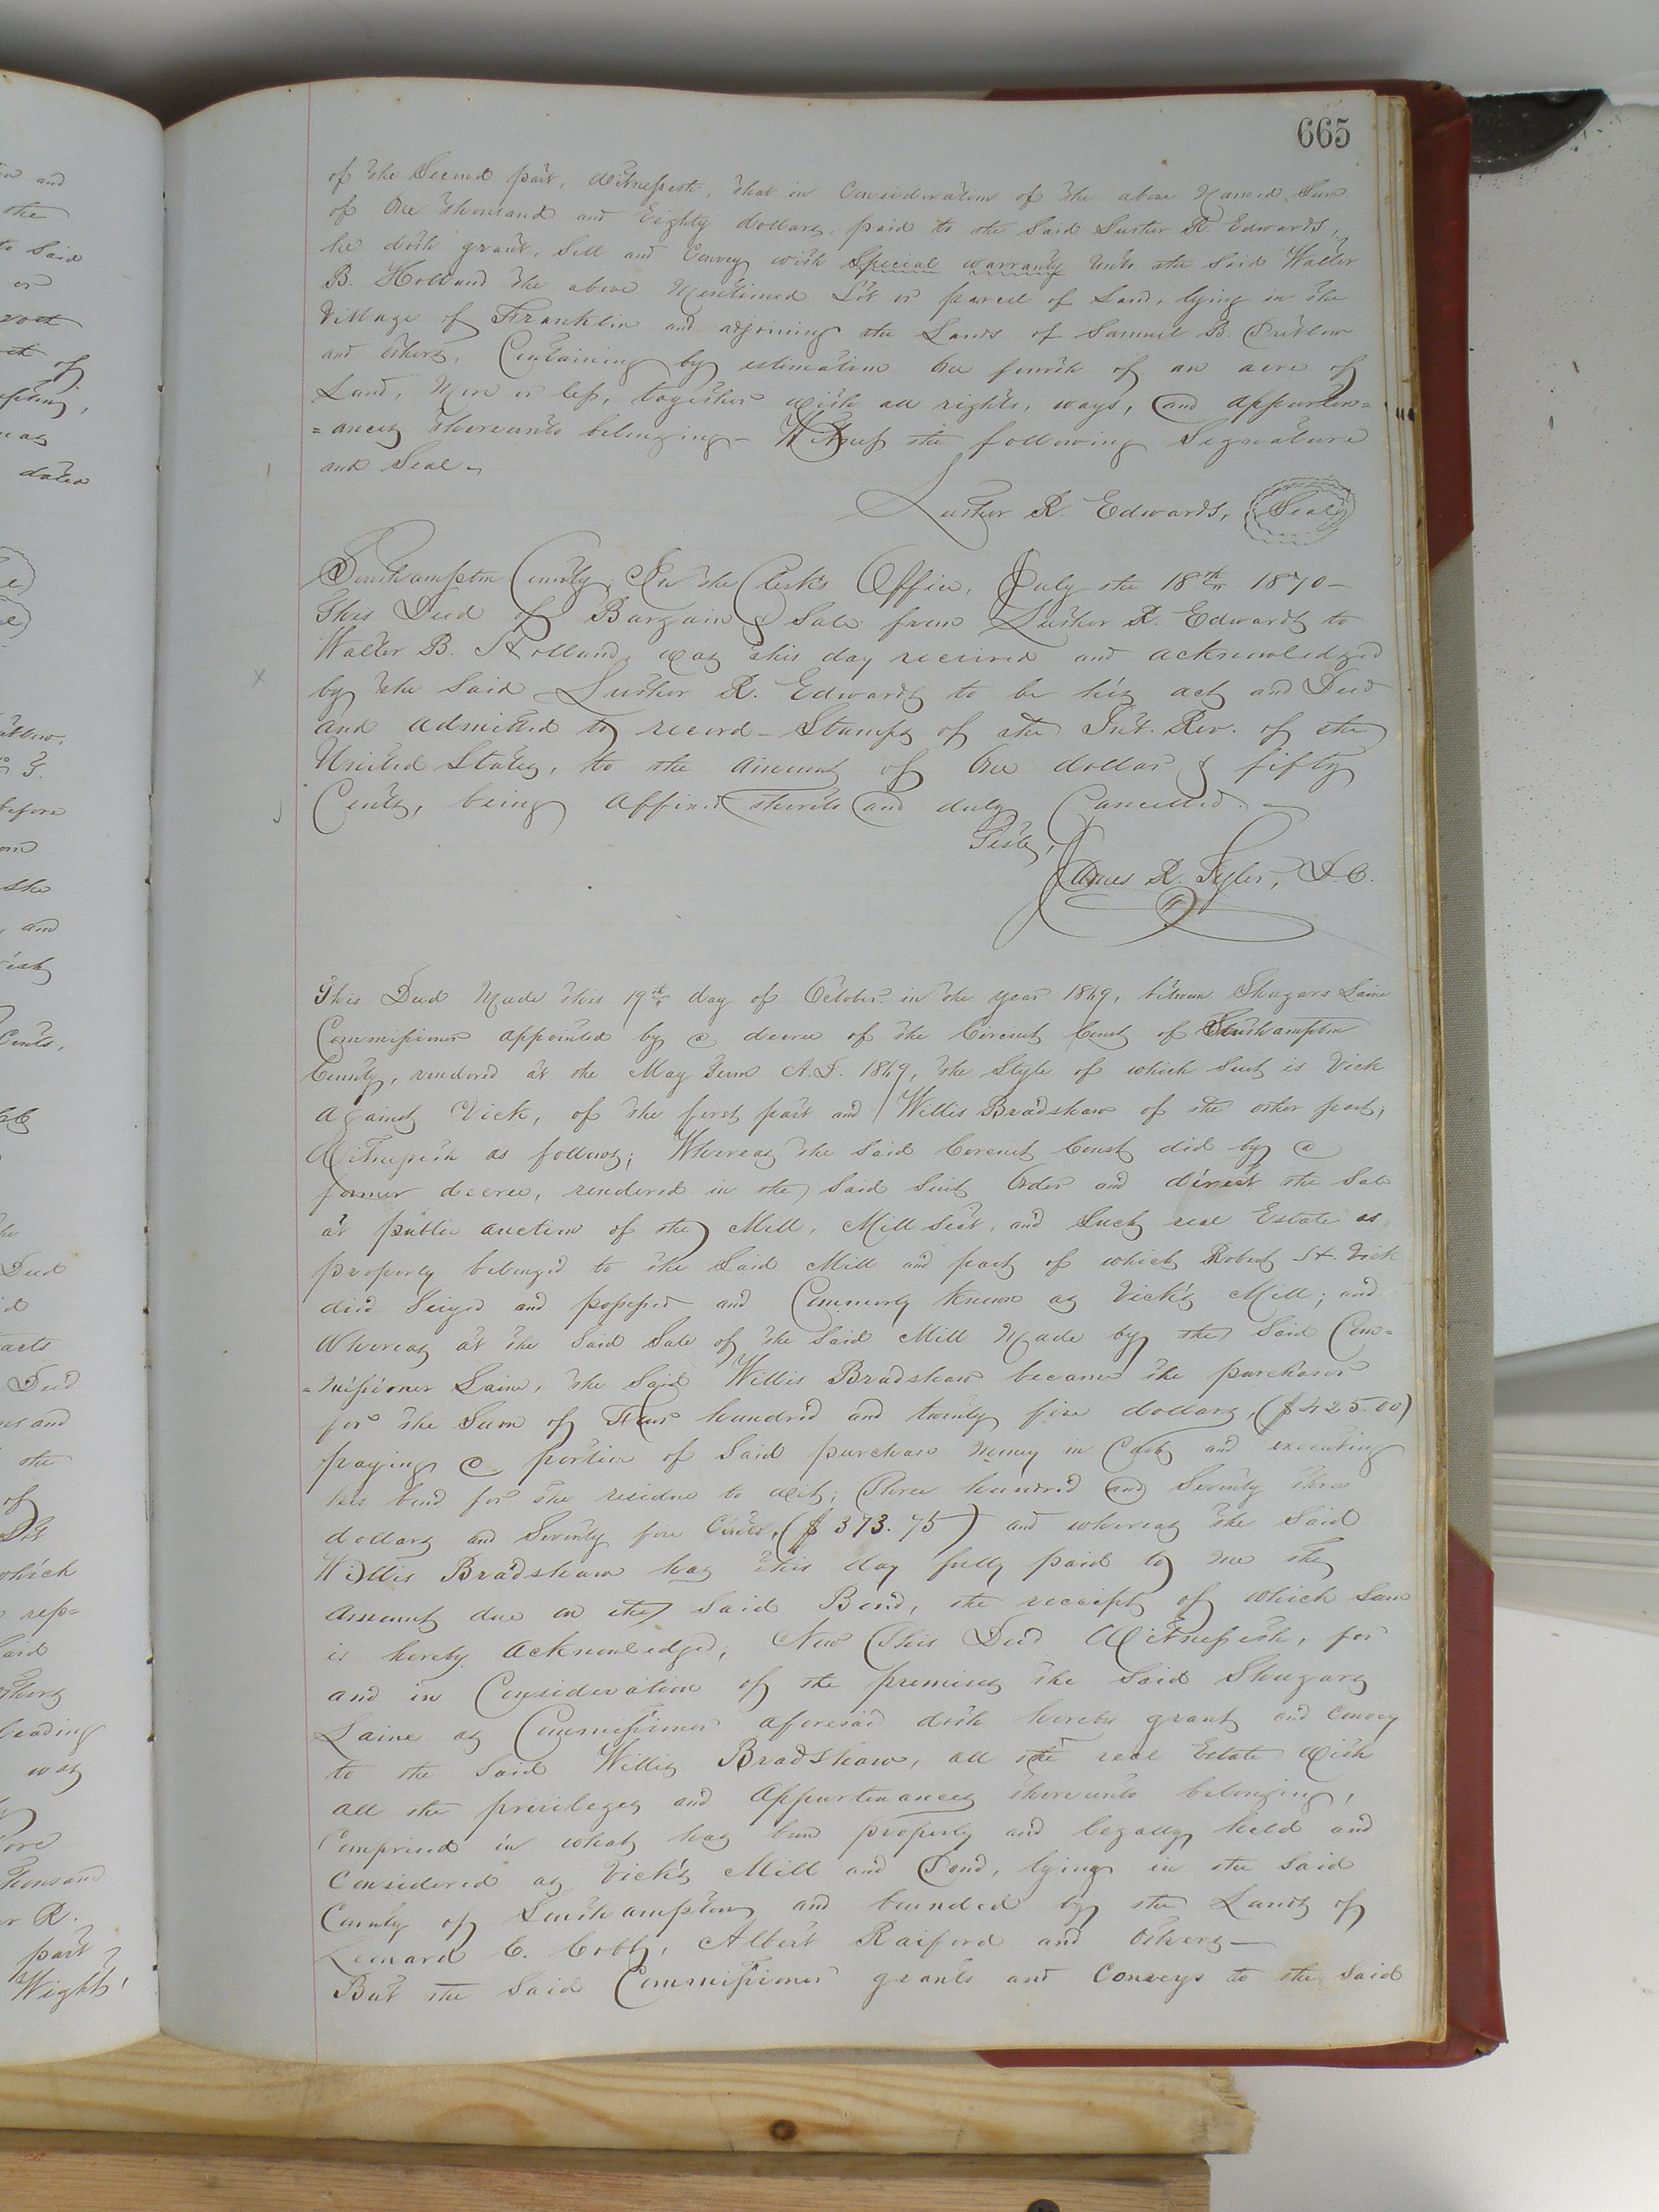 665
of the Second part, Witnesseth, that in Consideration of the above Named Sum
of One thousand and Eighty dollars, paid to the Said Luther R. Edwards,
he doth grant, Sell and Convey with Special warranty Unto the Said Walter
B. Holland the above Mentioned Lot or parcel of Land, lying in the
Village of Franklin and adjoining the Lands of Samuel B. Cutlow
and others, Containing by estimation One fourth of an acre of
Land, More or less, together with all rights, ways, and appurten=
=ances thereunto belonging — Witness the following Signature
and Seal —
Luther R. Edwards, Seal
Southampton County, In the Clerk's Office, July the 18th 1870 —
This Deed of Bargain & Sale from Luther R. Edwards to
Walter B. Holland, was this day received and acknowledged
by the Said Luther R. Edwards to be his act and Deed
and admitted to record — Stamps of the Int. Rev. of the
United States, to the amount of One dollar & fifty
Cents, being affixed thereto and duly Cancelled. —
Teste,
James R. Tyler, D.C.
This Deed Made this 19th day of October in the year 1869, between Shugars Laine
Commissioner appointed by a decree of the Circuit Court of Southampton
County, rendered at the May Term A.D. 1869, the Style of which Suit is Vick
against Vick, of the first part and Willis Bradshaw of the other part;
Witnesseth as follows; Whereas the said Circuit Court did by a
former decree, rendered in the said Suit Order and direct the Sale
at public auction of the Mill, Mill Seat, and Such real Estate as
properly belonged to the Said Mill and part of which Robert H. Vick
died Seized and possessed and Commonly Known as Vick's Mill; and
Whereas at the Said Sale of the Said Mill Made by the Said Com=
=missioner Laine, the Said Willis Bradshaw became the purchaser
for the Sum of Four hundred and twenty five dollars, ($425.00)
paying a portion of Said purchase Money in Cash and executing
his bond for the residue to wit; Three hundred and Seventy three
dollars and Seventy five Cents, ($373.75) and whereas the Said
Willis Bradshaw has this day fully paid to me the
amount due on the Said Bond, the receipt of which Sum
is hereby acknowledged; Now This Deed Witnesseth, for
and in Consideration of the premises the Said Shugars
Laine as Commissioner aforesaid doth hereby grant and Convey
to the Said Willis Bradshaw, all the real Estate With
all the privileges and Appurtenances thereunto belonging,
Comprised in what has been properly and legally held and
Considered as Vick's Mill and Pond, lying in the Said
County of Southampton and bounded by the Lands of
Leonard C. Cobb, Albert Raiford and Others —
But the Said Commissioner grants and Conveys to the Said